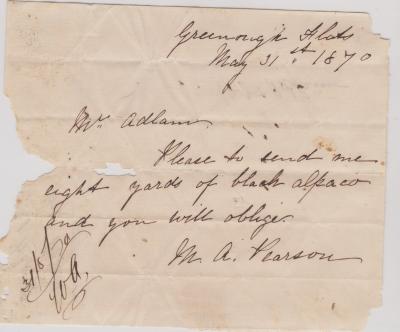 Greenough Flats
May 31st 1870
Mr. Adlam
Please to send me
eight yards of black alpaco
and you will oblige.
M. A. Pearson
31/5/70